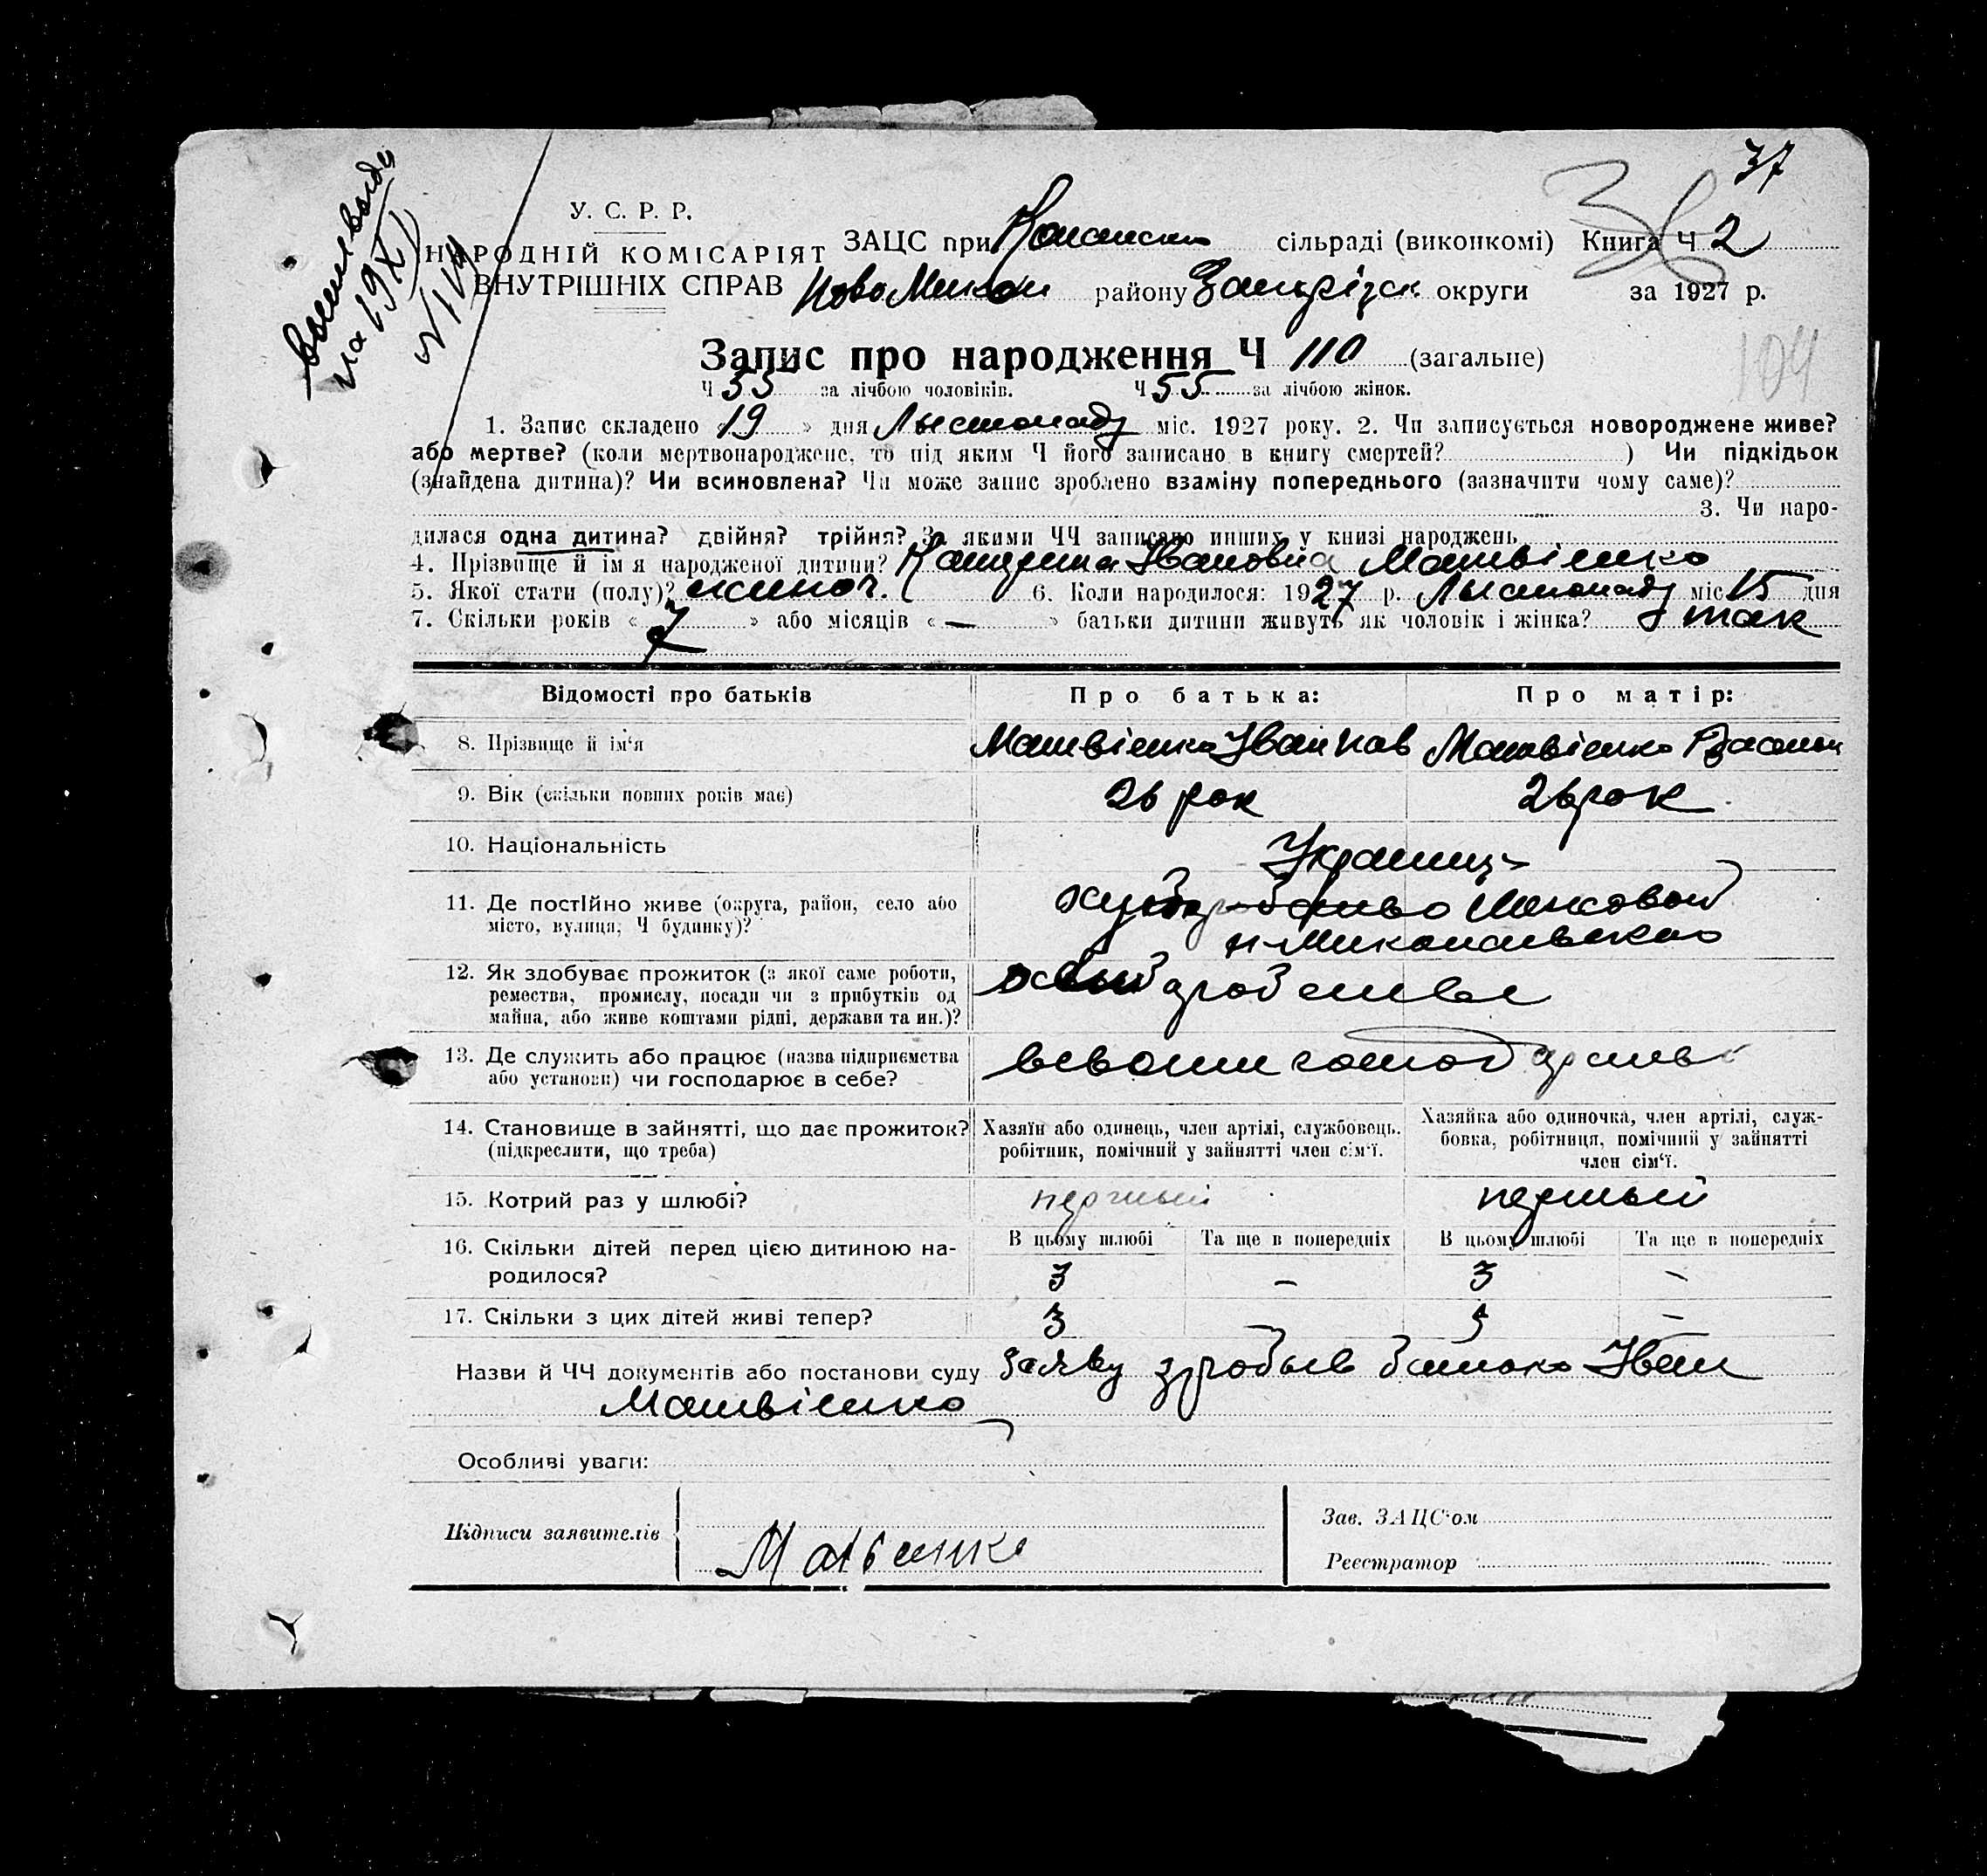 37
У. С. Р. Р.
НАРОДНІЙ КОМІСАРІЯТ
ВНУТРІШНІХ СПРАВ
ЗАЦС при сільраді (виконкомі) Книга Ч 2
Ново Микол району Запорізск округи за 1927 р.
36
104
на 19 XI
Запис про народження Ч 110 (загальне)
Ч 55 за лічбою чоловіків. Ч 55 за лічбою жінок.
1. Запис складено « 19 » дня Лыстопаду міс. 1927 року. 2. Чи записується новороджене живе?
або мертве? (коли мертвонароджене, то під яким Ч його записано в книгу смертей? ) Чи підкідьок
(знайдена дитина)? Чи всиновлена? Чи може запис зроблено взаміну попереднього (зазначити чому саме)?
3. Чи наро-
дилася одна дитина? двійня? трійня? За якими ЧЧ записано инших у книзі народжень
4. Прізвище й ім'я народженої дитини? Катерина Івановна Матвієнко
5. Якої стати (полу)? жиноч. 6. Коли народилося: 1927 р. Лыстопаду міс 15 дня
7. Скільки років « 7 » або місяців « — » батьки дитини живуть як чоловік і жінка? так
Відомості про батьків Про батька: Про матір:
8. Прізвище й ім'я Матвієнко Іван Пав Матвієнко
9. Вік (скільки повних років має) 26 рок 26 рок
10. Національність Украинц
11. Де постійно живе (округа, район, село або
місто, вулиця, Ч будинку)?
н-Миколаивского
12. Як здобуває прожиток (з якої саме роботи,
ремества, промислу, посади чи з прибутків од
майна, або живе коштами рідні, держави та ин.)?
13. Де служить або працює (назва підприємства
або установи) чи господарює в себе?
14. Становище в зайнятті, що дає прожиток?
(підкреслити, що треба)
Хазяїн або одинець, член артілі, службовець.
робітник, помічний у зайнятті член сім'ї.
Хазяйка або одиночка, член артілі, служ-
бовка, робітниця, помічний у зайнятті
член сім'ї.
15. Котрий раз у шлюбі? першый першый
В цьому шлюбі Та ще в попередніх В цьому шлюбі Та ще в попередніх
16. Скільки дітей перед цією дитиною на-
родилося? 3 — 3 —
17. Скільки з цих дітей живі тепер? 3 — 3 —
Назви й ЧЧ документів або постанови суду заяву зробыв батько Іван
Матвієнко
Особливі уваги:
Підписи заявителів Матвиенко
Зав. ЗАЦС'ом
Реєстратор